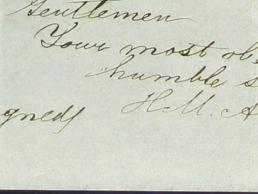 Gentlemen
Your most obe
humble s
gned) H.M. A